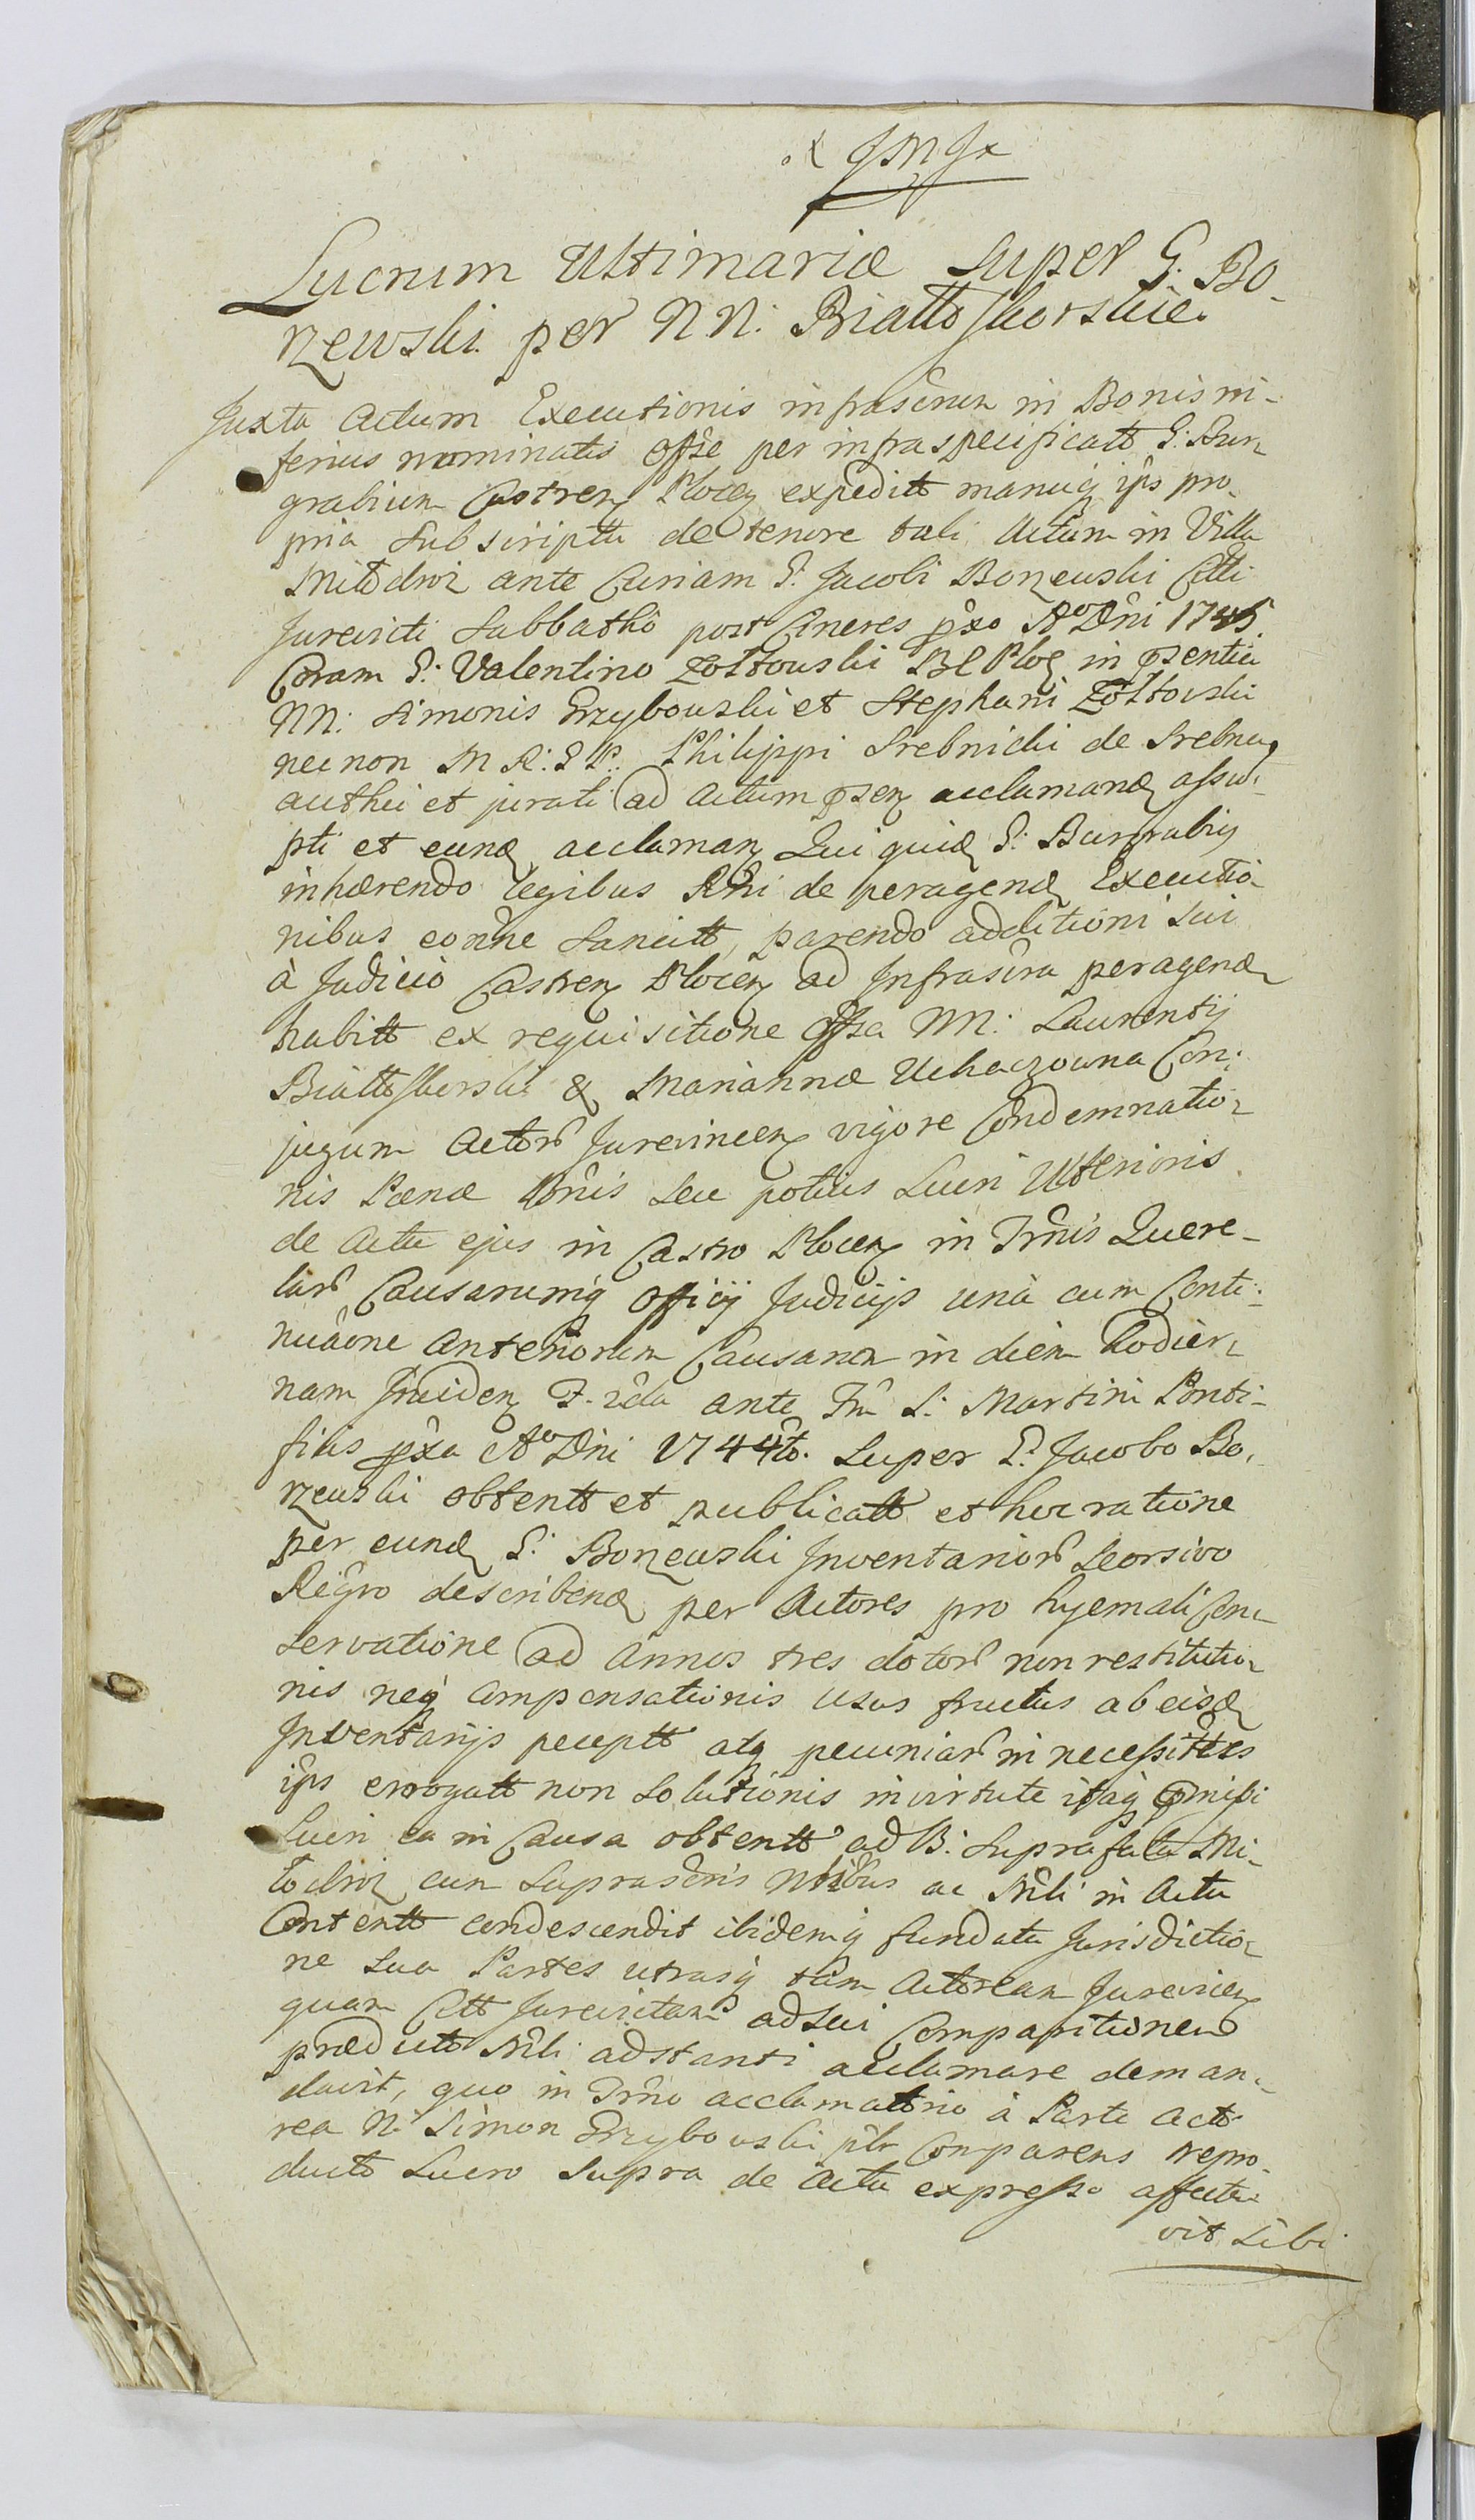 Lucrum Ultimariæ Super G. Bo-
rzewski per NN. Bialloskorskie.
Juxta Actum Executionis infrascrin in Bonis in-
ferius nominatis Offse per infraspecificatt G. Bur-
grabium Castren Plocen expeditt manuq ips pro-
pria Subscriptu de tenore tali Actum in Villa
Miłodroz ante Curiam G. Jacobi Borzewski Citti
Jurevicti Sabbatho post Cineres pxo Ao Dni 1745
Coram G. Valentino Zołtowski BC Ploc in psentia
NN. Simonis Grzybowski et Stephani Zołtowski
necnon M R. G P. Philippi Srebnicki de Srebna
authci et jurati ad Actum psen acclamand assu-
pti et eund acclaman Qui quid G. Burgrabis
inhærendo legibus Rni de peragend Executio-
nibus eonne Sancitt, parendo additioni Sui
à Judicio Castren Plocen ad Infrascra peragend
habitt ex requisitione Offsa NN. Laurentij
Biallosborski & Mariannæ Uchaczowna Con-
jugum Actor Jurevincen vigore Condemnatio-
nis Pœnæ Bnis Seu potius Lucri Ulterioris
de Actu ejus in Castro Plocen in Trnis Quere-
lar Causarumq officij Judicijs unà cum Conti-
nuaone Anteriorum Causarum in diem hodier-
nam Inciden F. 2da ante Fm S. Martini Ponti-
ficis pxa Ao Dni 1744to. Super G. Jacobo Bo-
rzewski obtentt et publicatt et hac ratione
per eund G. Borzewski Inventarior Seorsivo
Regro describend per Actores pro hyemali Con-
servatione ad Annos tres dotor non restitutio-
nis neq Compensationis usus fructus ab eisd
Inventarijs peceptt atq pecuniar in necessittes
ips errogatt non Solutionis in virtute itaq pmissi
Lucri ea in Causa obtentt ad B. Suprafata Mi-
łodroz cum Suprascris Nobibus ac Mrli in Actu
Contentt condescendit ibidemq fundata Jurisdictio-
ne Sua Partes utrasq tàm Actoream Jurevicen
quam Citt Jurevictam ad Sui Comparitionem
prædicto Mrli adstanti acclamare deman-
davit, quo in Trno acclamatorio à Parte Acto-
rea N. Simon Grzybowski plr Comparens repro-
ducto Lucro Supra de Actu expresso affecta-
vit Sibi